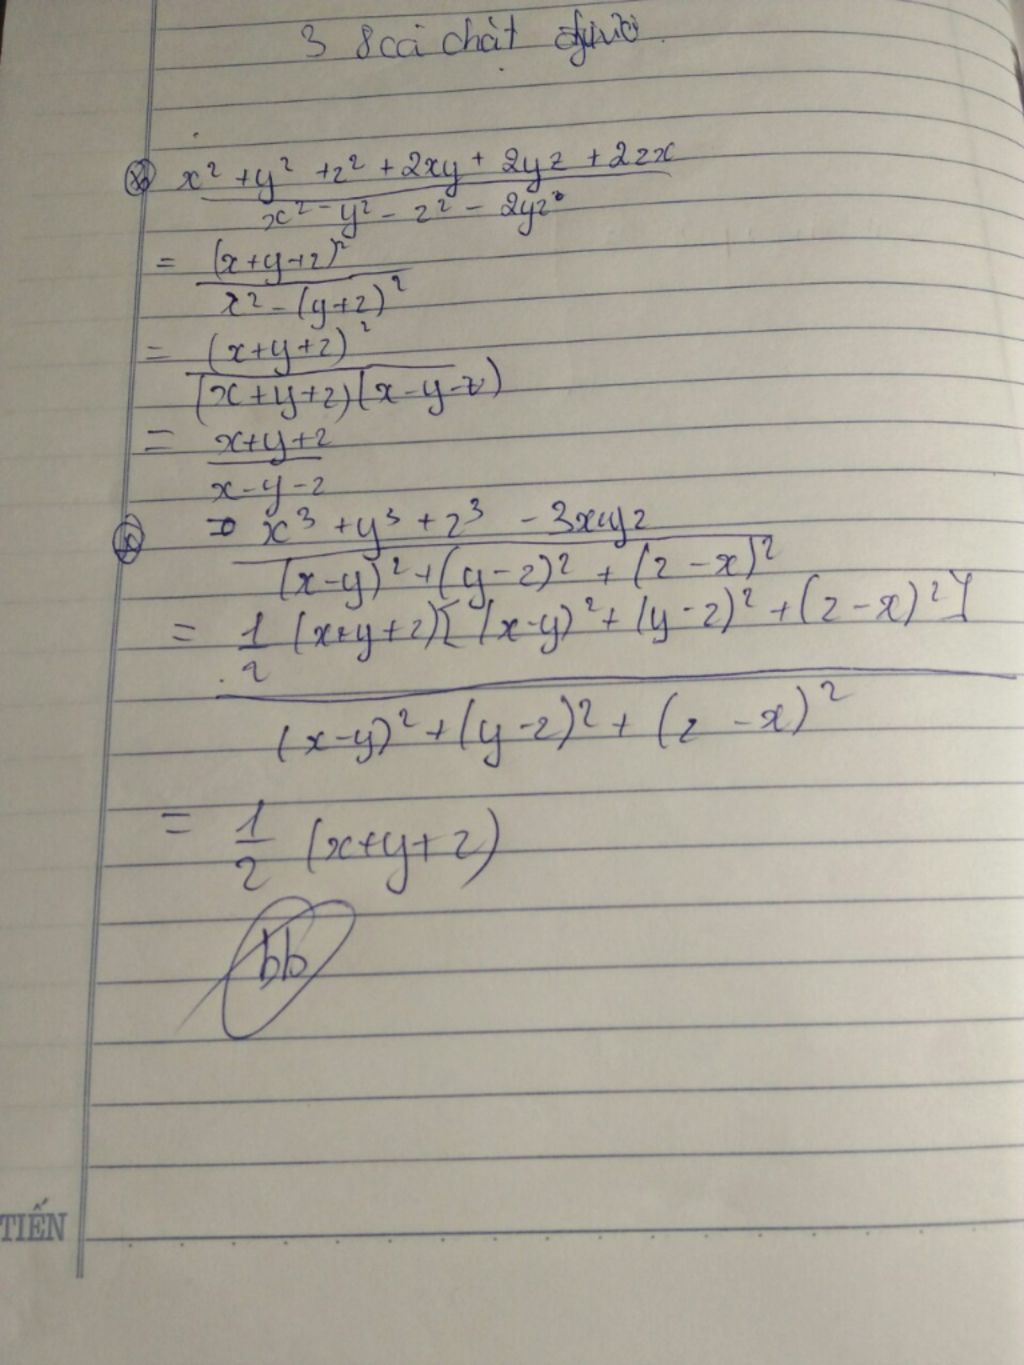 3 8 cái chất
x² + y² + z² + 2xy + 2yz + 2zx
x² - y² - z² - 2yz
= (x+y+z)²
x² - (y+z)²
= (x+y+z)²
(x+y+z)(x-y-z)
= x+y+z
x-y-z
⇒ x³ + y³ + z³ - 3xyz
(x-y)² + (y-z)² + (z-x)²
= 1/2 (x+y+z)[(x-y)² + (y-z)² + (z-x)²]
(x-y)² + (y-z)² + (z-x)²
= 1/2 (x+y+z)
bb
TIẾN